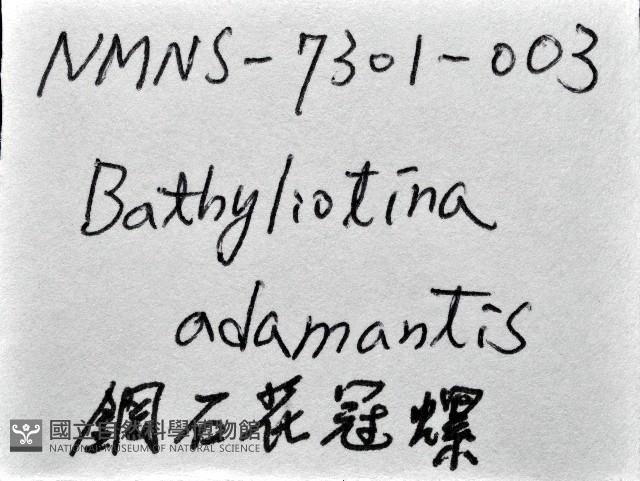 NMNS-7301-003
Bathyliotina
adamantis
鋼石花冠螺
國立自然科學博物館
NATIONAL MUSEUM OF NATURAL SCIENCE